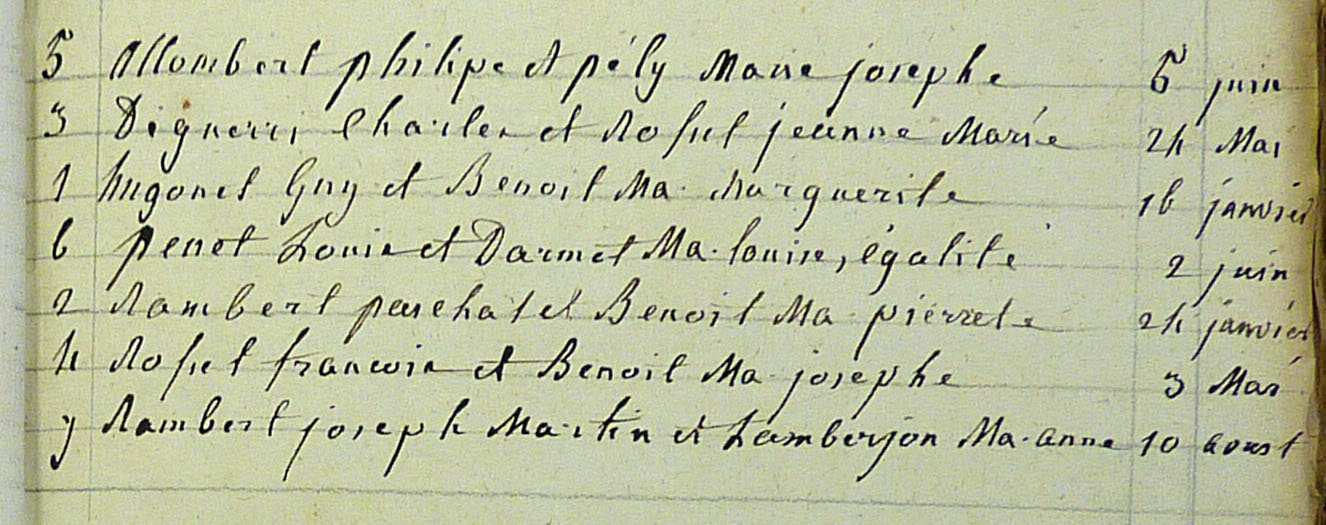 5 Allombert philipe et pély Marie josephe 5 juin
3 Digneri Charles et Rosset jeanne Marie 24 Mai
1 hugonet Guy et Benoit Ma. Marguerite 16 janvier
6 penet Louis et Darmet Ma. louise, égalité 2 juin
2 Rambert paschal et Benoit Ma. pierrete 24 janvier
4 Rosset francois et Benoit Ma. josephe 3 Mai
7 Rambert joseph Martin et Lamberjon Ma. anne 10 aoust